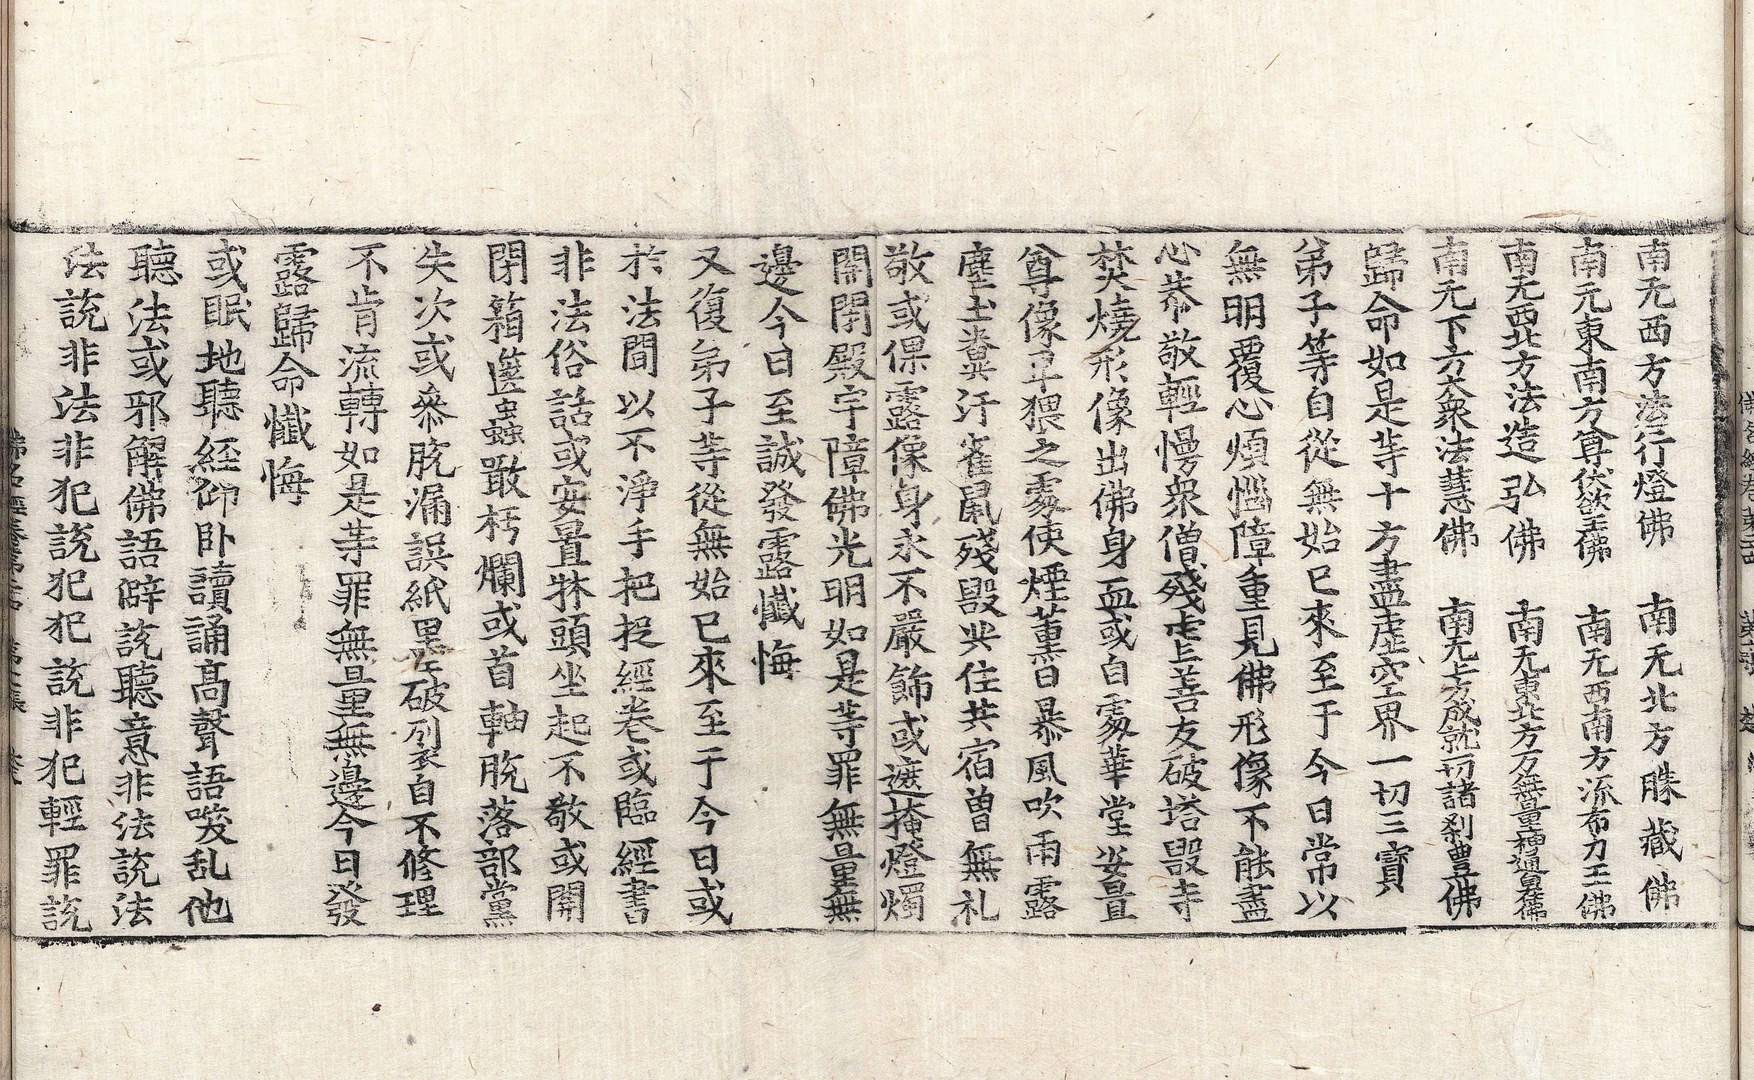 南无西方法行燈佛　南无北方勝藏佛
南无東南方尊伏欲王佛　南无西南方流布力王佛
南无西北方法造弘佛　南无東北方万無量神通貝佛
南无下方衆法慧佛　南无上方成就一切諸剎豊佛
歸命如是等十方盡虛空界一切三寶
弟子等自從無始已來至于今日常以
無明覆心煩惱障重見佛形像不能盡
心恭敬輕慢衆僧殘害善友破塔毀寺
焚燒形像出佛身血或自處華堂安置
尊像卑猥之處使煙薰日暴風吹雨露
塵土糞汙雀䑕殘毀共住共宿曽無礼
敬或倮露像身永不嚴飾或遮掩燈燭
開閉殿宇障佛光明如是等罪無量無
邊今日至誠發露懺悔
又復弟子等從無始已來至于今日或
於法間以不淨手把捉經卷或臨經書
非法俗話或安置牀頭坐起不敬或開
閉箱篋蟲噉朽爛或首軸脫落部黨
失次或㕘脫漏誤紙墨破列自不修理
不肯流轉如是等罪無量無邊今日發
露歸命懺悔
或眠地聽經仰卧讀誦髙聲語𥬇乱他
聽法或邪解佛語僻說聽意非法說法
法說非法非犯說犯犯說非犯輕罪說